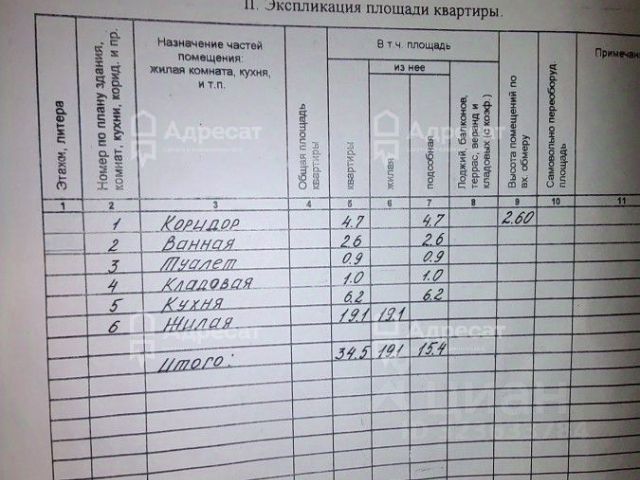 II. Экспликация площади квартиры.
Этажи, литера
Номер по плану здания, комнат, кухни, корид. и пр.
Назначение частей помещения: жилая комната, кухня, и т.п.
Общая площадь квартиры
В т.ч. площадь
квартиры
из нее
жилая
подсобная
Лоджий, балконов, террас, веранд и кладовых (с коэф.)
Высота помещений по вн. обмеру
Самовольно переоборуд. площадь
Примечан
1 2 3 4 5 6 7 8 9 10 11
1 Коридор 4.7 4.7 2.60
2 Ванная 2.6 2.6
3 Туалет 0.9 0.9
4 Кладовая 1.0 1.0
5 Кухня 6.2 6.2
6 Жилая 19.1 19.1
Итого: 34.5 19.1 15.4
Адресат
Адресат
Адресат
Адресат
циан